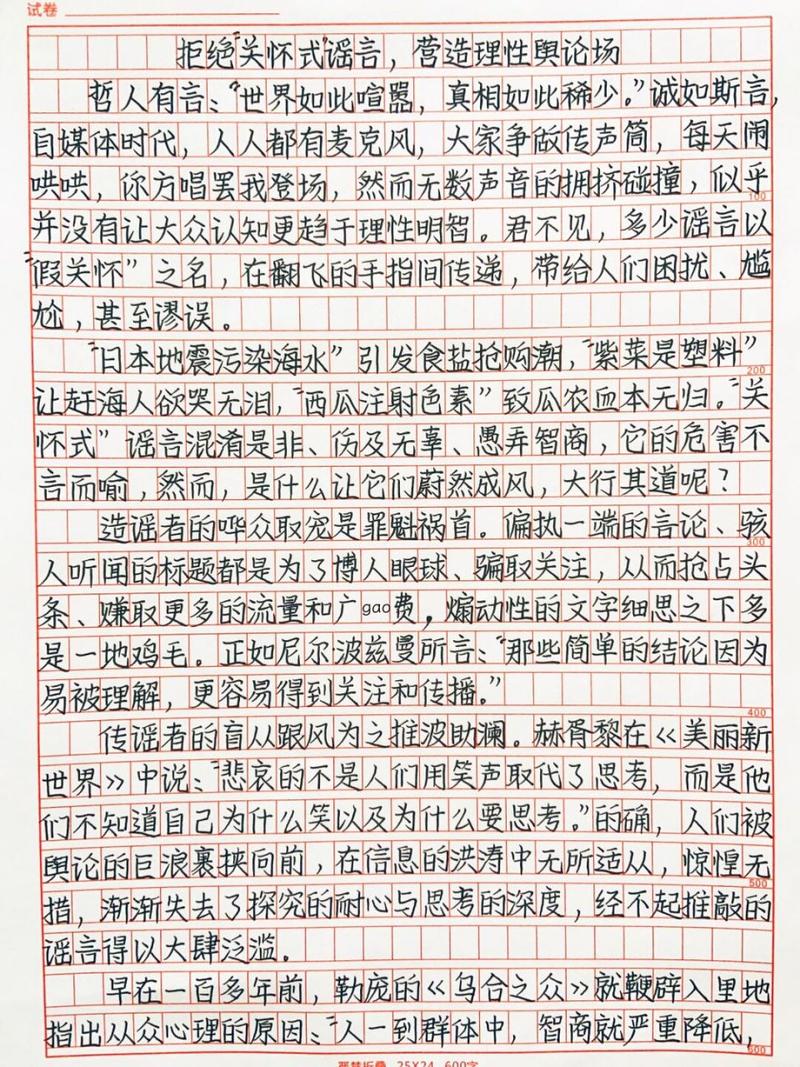 试卷
拒绝“关怀式”谣言，营造理性舆论场
哲人有言：“世界如此喧嚣，真相如此稀少。”诚如斯言，
自媒体时代，人人都有麦克风，大家争做传声筒，每天闹
哄哄，你方唱罢我登场，然而无数声音的拥挤碰撞，似乎
100
并没有让大众认知更趋于理性明智。君不见，多少谣言以
“假关怀”之名，在翻飞的手指间传递，带给人们困扰、尴
尬，甚至谬误。
“日本地震污染海水”引发食盐抢购潮，“紫菜是塑料”
200
让赶海人欲哭无泪，“西瓜注射色素”致瓜农血本无归。“关
怀式”谣言混淆是非、伤及无辜、愚弄智商，它的危害不
言而喻，然而，是什么让它们蔚然成风，大行其道呢？
造谣者的哗众取宠是罪魁祸首。偏执一端的言论、骇
300
人听闻的标题都是为了博人眼球、骗取关注，从而抢占头
条、赚取更多的流量和广gao费，煽动性的文字细思之下多
是一地鸡毛。正如尼尔波兹曼所言：“那些简单的结论因为
易被理解，更容易得到关注和传播。”
400
传谣者的盲从跟风为之推波助澜。赫胥黎在《美丽新
世界》中说：“悲哀的不是人们用笑声取代了思考，而是他
们不知道自己为什么笑以及为什么要思考。”的确，人们被
舆论的巨浪裹挟向前，在信息的洪涛中无所适从，惊惶无
500
措，渐渐失去了探究的耐心与思考的深度，经不起推敲的
谣言得以大肆泛滥。
早在一百多年前，勒庞的《乌合之众》就鞭辟入里地
指出从众心理的原因：“人一到群体中，智商就严重降低，
600
25X24 600字